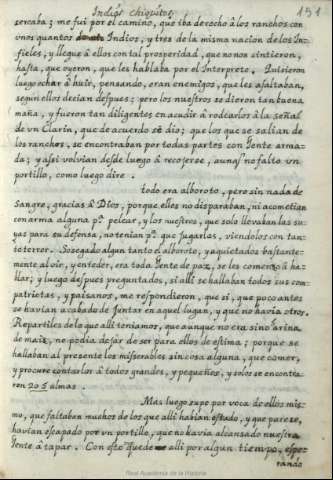 Indios chiquitos.
191
cercaba; me fui por el camino, que iba derecho â los ranchos con
unos quantos Indios, y tres de la misma nacion de los In-
fieles, y lleguè â ellos con tal prosperidad, que no nos sintieron,
hasta, que oyeron, que les hablaba por el Interprete. Quisieron
luego echar â huir, pensando, eran enemigos, que les asaltaban,
segun ellos decian despues; pero los nuestros se dieron tan buena
maña, y fueron tan diligentes en acudir â rodearlos â la señal
de un Clarin, que de acuerdo se diò; que los que se salian de
los ranchos, se encontraban por todas partes con Gente arma-
da; y assi volvian desde luego â recogerse, aunq̃ no faltò un
portillo, como luego dire.
todo era alboroto, pero sin nada de
sangre, gracias â Dios, porque ellos no disparaban, ni acometian
con arma alguna pª pelear, y los nuestros, que solo llevaban las su-
yas para su defensa, no tenian pª que jugarlas, viendolos con tan-
to terror. Sosegado algun tanto el alboroto, y aquietados bastante-
mente al oir, y entẽder, era toda Gente de paz, se les comenzò â ha-
blar; y luego despues preguntados, si alli se hallaban todos sus com-
patrietas, y paisanos, me respondieron, que si, que poco antes
se havian acabado de juntar en aquel lugar, y que no havia otros.
Repartiles de lo que alli teniamos, que aunque no era sino harina
de maiz, no podia dejar de ser para ellos de estima; porque se
hallaban al presente los miserables sin cosa alguna, que comer,
y procurè contarlos â todos grandes, y pequeños, y solos se encontra-
ron 205 almas.
Mas luego supe por voca de ellos mis-
mo, que faltaban muchos de los que alli habian estado, y que parece,
havian escapado por un portillo, que no havia alcansado nuestra
Gente â tapar. Con esto quedè alli por algun tiempo, espe-
rando
Real Academia de la Historia